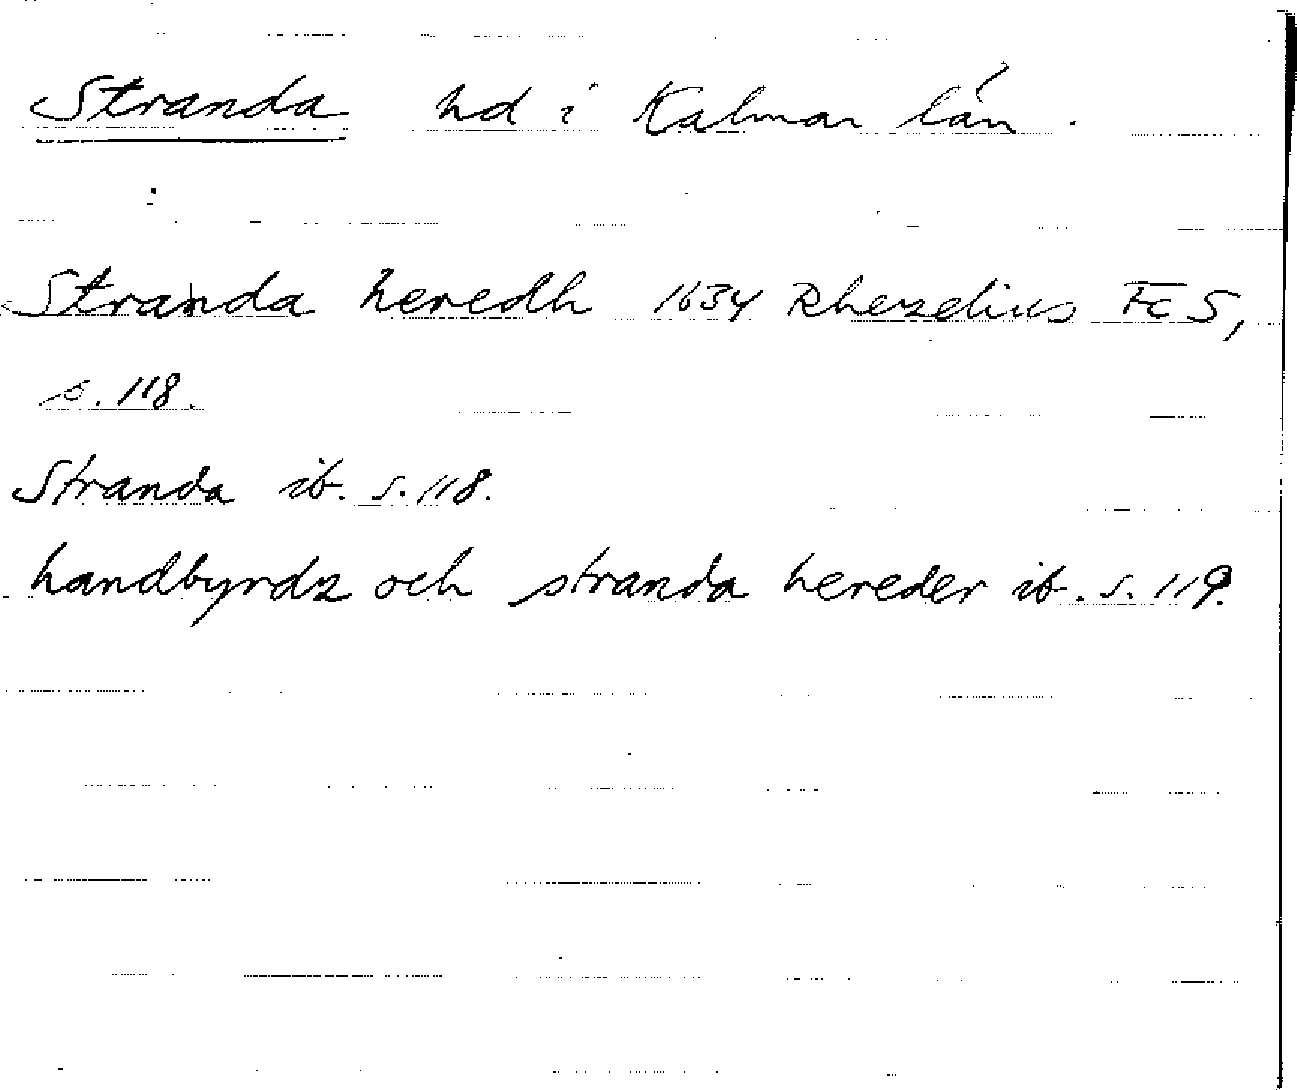 Stranda hd i Kalmar län.
Stranda heredh 1634 Rhezelius Fc 5,
s. 118.
Stranda ib. s. 118.
handbyrdz och stranda hereder ib. s. 119.